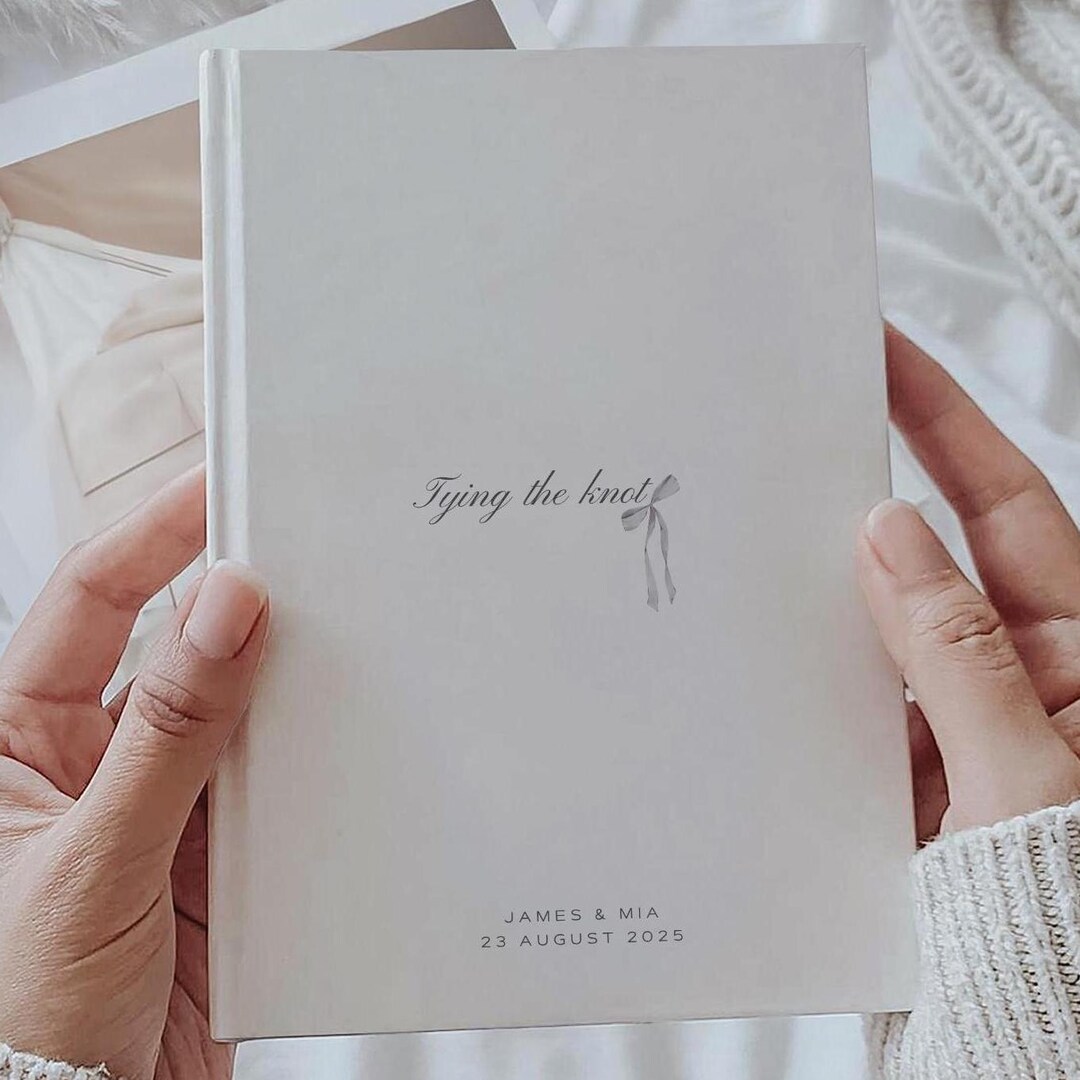 Tying the knot
JAMES & MIA
23 AUGUST 2025